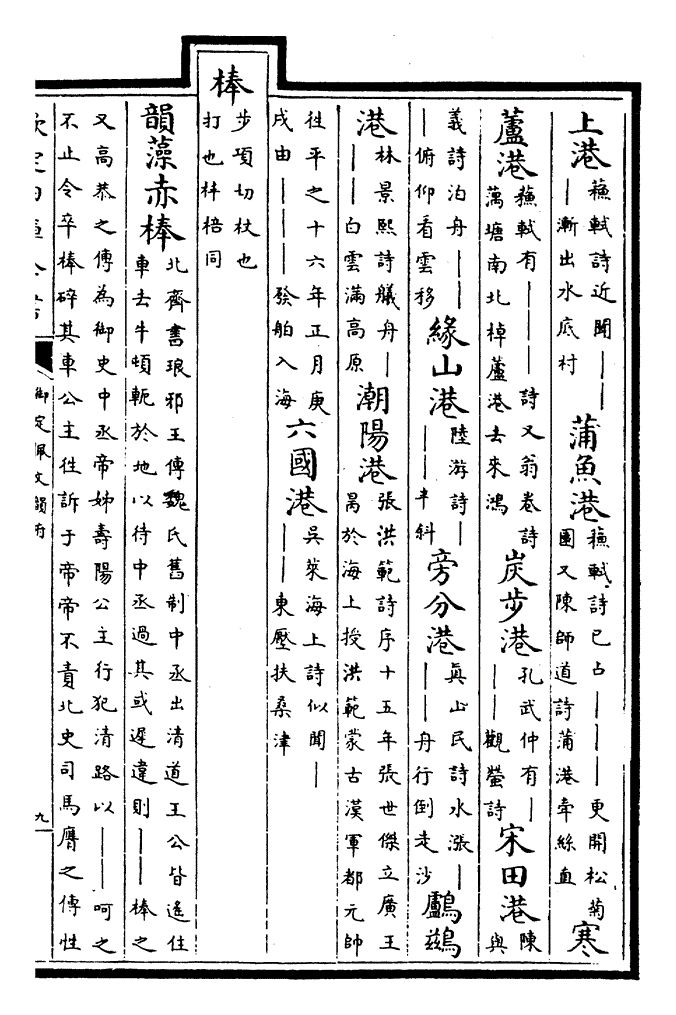 上港蘓軾詩近聞——
—漸出水底村
蒲魚港蘓軾詩已占———更開松菊
園又陳師道詩蒲港牽絲直
寒
蘆港蘓軾有———詩又翁卷詩
蕅塘南北棹蘆港去來鴻
炭步港孔武仲有—
——觀螢詩
宋田港陳
與
義詩泊舟———
—俯仰看雲移
緣山港陸游詩—
——半斜
旁分港真山民詩水漲—
——舟行倒走沙
鸕鷀
港林景熙詩艤舟—
——白雲滿高原
潮陽港張洪範詩序十五年張世傑立廣王
昺於海上授洪範蒙古漢軍都元帥
徃平之十六年正月庚
戌由———發舶入海
六國港吳萊海上詩似聞—
——東壓扶桑津
棒步項切杖也
打也柈棓同
韻藻赤棒北齊書琅邪王傳魏氏舊制中丞出清道王公皆遙住
車去牛頓軛於地以待中丞過其或遲違則——棒之
又高恭之傳為御史中丞帝姊壽陽公主行犯清路以——呵之
不止令卒棒碎其車公主徃訴于帝帝不責北史司馬膺之傳性
欽定四庫全書
御定佩文韻府
九